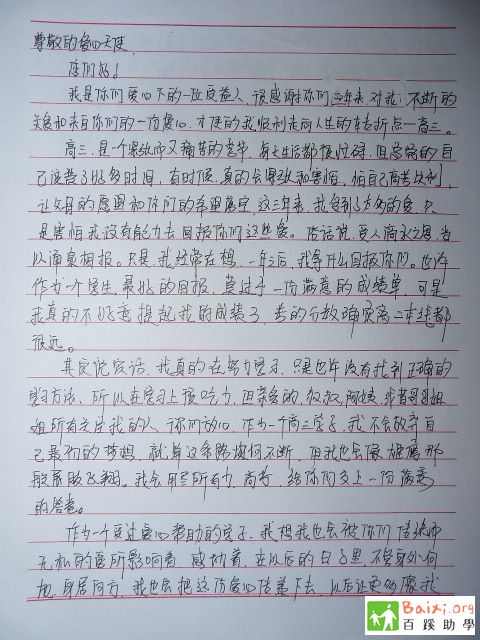 尊敬的爱心天使
您们好！
我是你们爱心下的一位受益人，很感谢你们三年来对我，不断的
关爱和来自你们的一份爱心，才使的我顺利走向人生的转折点—高三。
高三，是一个紧张而又痛苦的季节，每天生活都很忙碌，但总觉的自
己浪费了好多时间，有时候，真的会紧张和害怕，怕自己高考失利，
让父母的愿望和你们的希望落空，这三年来，我受到了太多的爱，只
是害怕我没有能力去回报你们这些爱。俗话说，受人滴水之恩，当
以涌泉相报。只是，我经常在想，一年后，我拿什么回报你们。也许
作为一个学生，最好的回报，莫过于一份满意的成绩单，可是
我真的不好意提起我的成绩了，考的分数确实离二本线都
很远。
其实说实话，我真的在努力学习，只是也许没有找到正确的
学习方法，所以在学习上很吃力，但亲爱的，叔叔，阿姨，或者哥哥姐
姐所有支持我的人，你们放心，作为一个高三学子，我不会放弃自
己最初的梦想，就算这条路坎坷不断，但我也会像雄鹰那
般展翅飞翔。我会用尽所有力，高考，给你们交上一份满意
的答卷。
作为一个受过爱心帮助的学子，我想我也会被你们这种
无私的爱所影响着，感动着，在以后的日子里，不管身外何
地，身居何方，我也会把这份爱心传递下去，以后让更多像我
Baixi.org
百蹊助學